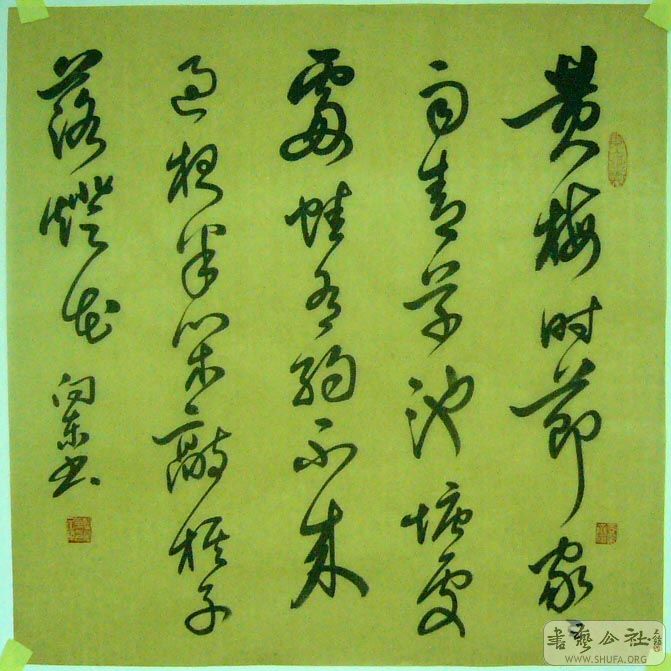 黄梅时節家々
雨青草池塘处
處蛙有約不来
过夜半闲敲棋子
落燈花
向东书
書藝公社
WWW.SHUFA.ORG